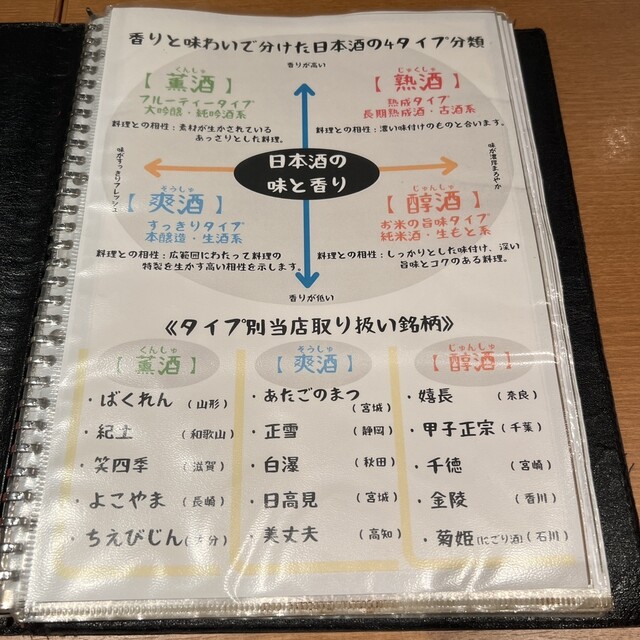 香りと味わいで分けた日本酒の4タイプ分類
香りが高い
くんしゅ
【 薫酒 】
フルーティータイプ
大吟醸・純吟酒系
料理との相性：素材が生かされている
あっさりとした料理。
じゅくしゅ
【 熟酒 】
熟成タイプ
長期熟成酒・古酒系
料理との相性：濃い味付けのものと合います。
味がすっきりフレッシュ
日本酒の
味と香り
味が濃厚まろやか
そうしゅ
【 爽酒 】
すっきりタイプ
本醸造・生酒系
料理との相性：広範囲にわたって料理の
特製を生かす高い相性を示します。
じゅんしゅ
【 醇酒 】
お米の旨味タイプ
純米酒・生もと系
料理との相性：しっかりとした味付け、深い
旨味とコクのある料理。
香りが低い
《タイプ別当店取り扱い銘柄》
くんしゅ
【 薫酒 】
・ばくれん (山形)
・紀土 (和歌山)
・笑四季 (滋賀)
・よこやま (長崎)
・ちえびじん(大分)
そうしゅ
【 爽酒 】
・あたごのまつ
(宮城)
・正雪 (静岡)
・白瀑 (秋田)
・日高見 (宮城)
・美丈夫 (高知)
じゅんしゅ
【 醇酒 】
・嬉長 (奈良)
・甲子正宗 (千葉)
・千徳 (宮崎)
・金陵 (香川)
・菊姫(にごり酒)(石川)